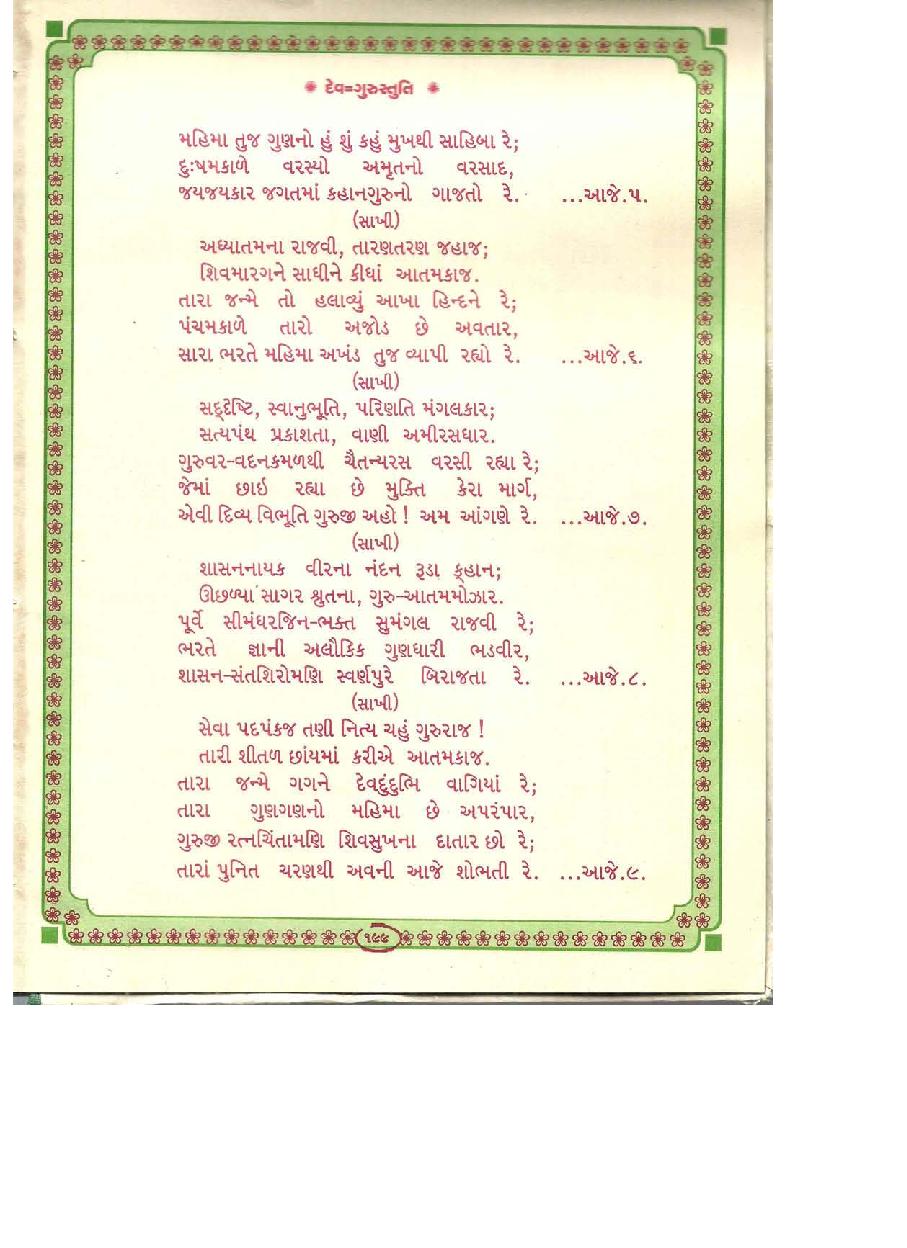 દેવ=ગુરુસ્તુતિ
મહિમા તુજ ગુણનો હું શું કહું મુખથી સાહિબા રે;
દુઃષમકાળે વરસ્યો અમૃતનો વરસાદ,
જયજયકાર જગતમાં કહાનગુરુનો ગાજતો રે. ...આજે.૫.
(સાખી)
અધ્યાતમના રાજવી, તારણતરણ જહાજ;
શિવમારગને સાધીને કીધાં આતમકાજ.
તારા જન્મે તો હલાવ્યું આખા હિન્દને રે;
પંચમકાળે તારો અજોડ છે અવતાર,
સારા ભરતે મહિમા અખંડ તુજ વ્યાપી રહ્યો રે. ...આજે.૬.
(સાખી)
સદ્દષ્ટિ, સ્વાનુભૂતિ, પરિણતિ મંગલકાર;
સત્યપંથ પ્રકાશતા, વાણી અમીરસધાર.
ગુરુવર-વદનકમળથી ચૈતન્યરસ વરસી રહ્યા રે;
જેમાં છાઇ રહ્યા છે મુક્તિ કેરા માર્ગ,
એવી દિવ્ય વિભૂતિ ગુરુજી અહો ! અમ આંગણે રે. ...આજે.૭.
(સાખી)
શાસનનાયક વીરના નંદન રૂડા ક્હાન;
ઊછળ્યા સાગર શ્રુતના, ગુરુ-આતમમોઝાર.
પૂર્વે સીમંધરજિન-ભક્ત સુમંગલ રાજવી રે;
ભરતે જ્ઞાની અલૌકિક ગુણધારી ભડવીર,
શાસન-સંતશિરોમણિ સ્વર્ણપુરે બિરાજતા રે. ...આજે.૮.
(સાખી)
સેવા પદપંકજ તણી નિત્ય ચહું ગુરુરાજ !
તારી શીતળ છાંયમાં કરીએ આતમકાજ.
તારા જન્મે ગગને દેવદુંદુભિ વાગિયાં રે;
તારા ગુણગણનો મહિમા છે અપરંપાર,
ગુરુજી રત્નચિંતામણિ શિવસુખના દાતાર છો રે;
તારાં પુનિત ચરણથી અવની આજે શોભતી રે. ...આજે.૯.
૧૯૯